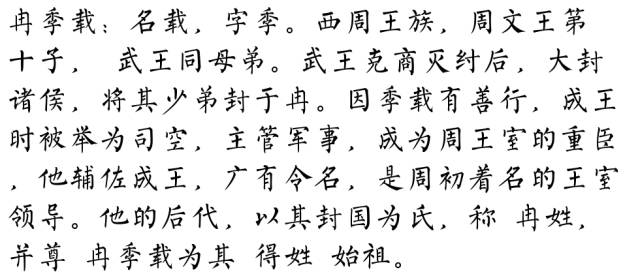 冉季载：名载，字季。西周王族，周文王第
十子， 武王同母弟。武王克商灭纣后，大封
诸侯，将其少弟封于冉。因季载有善行，成王
时被举为司空，主管军事，成为周王室的重臣
，他辅佐成王，广有令名，是周初着名的王室
领导。他的后代，以其封国为氏，称 冉姓，
并尊 冉季载为其 得姓 始祖。